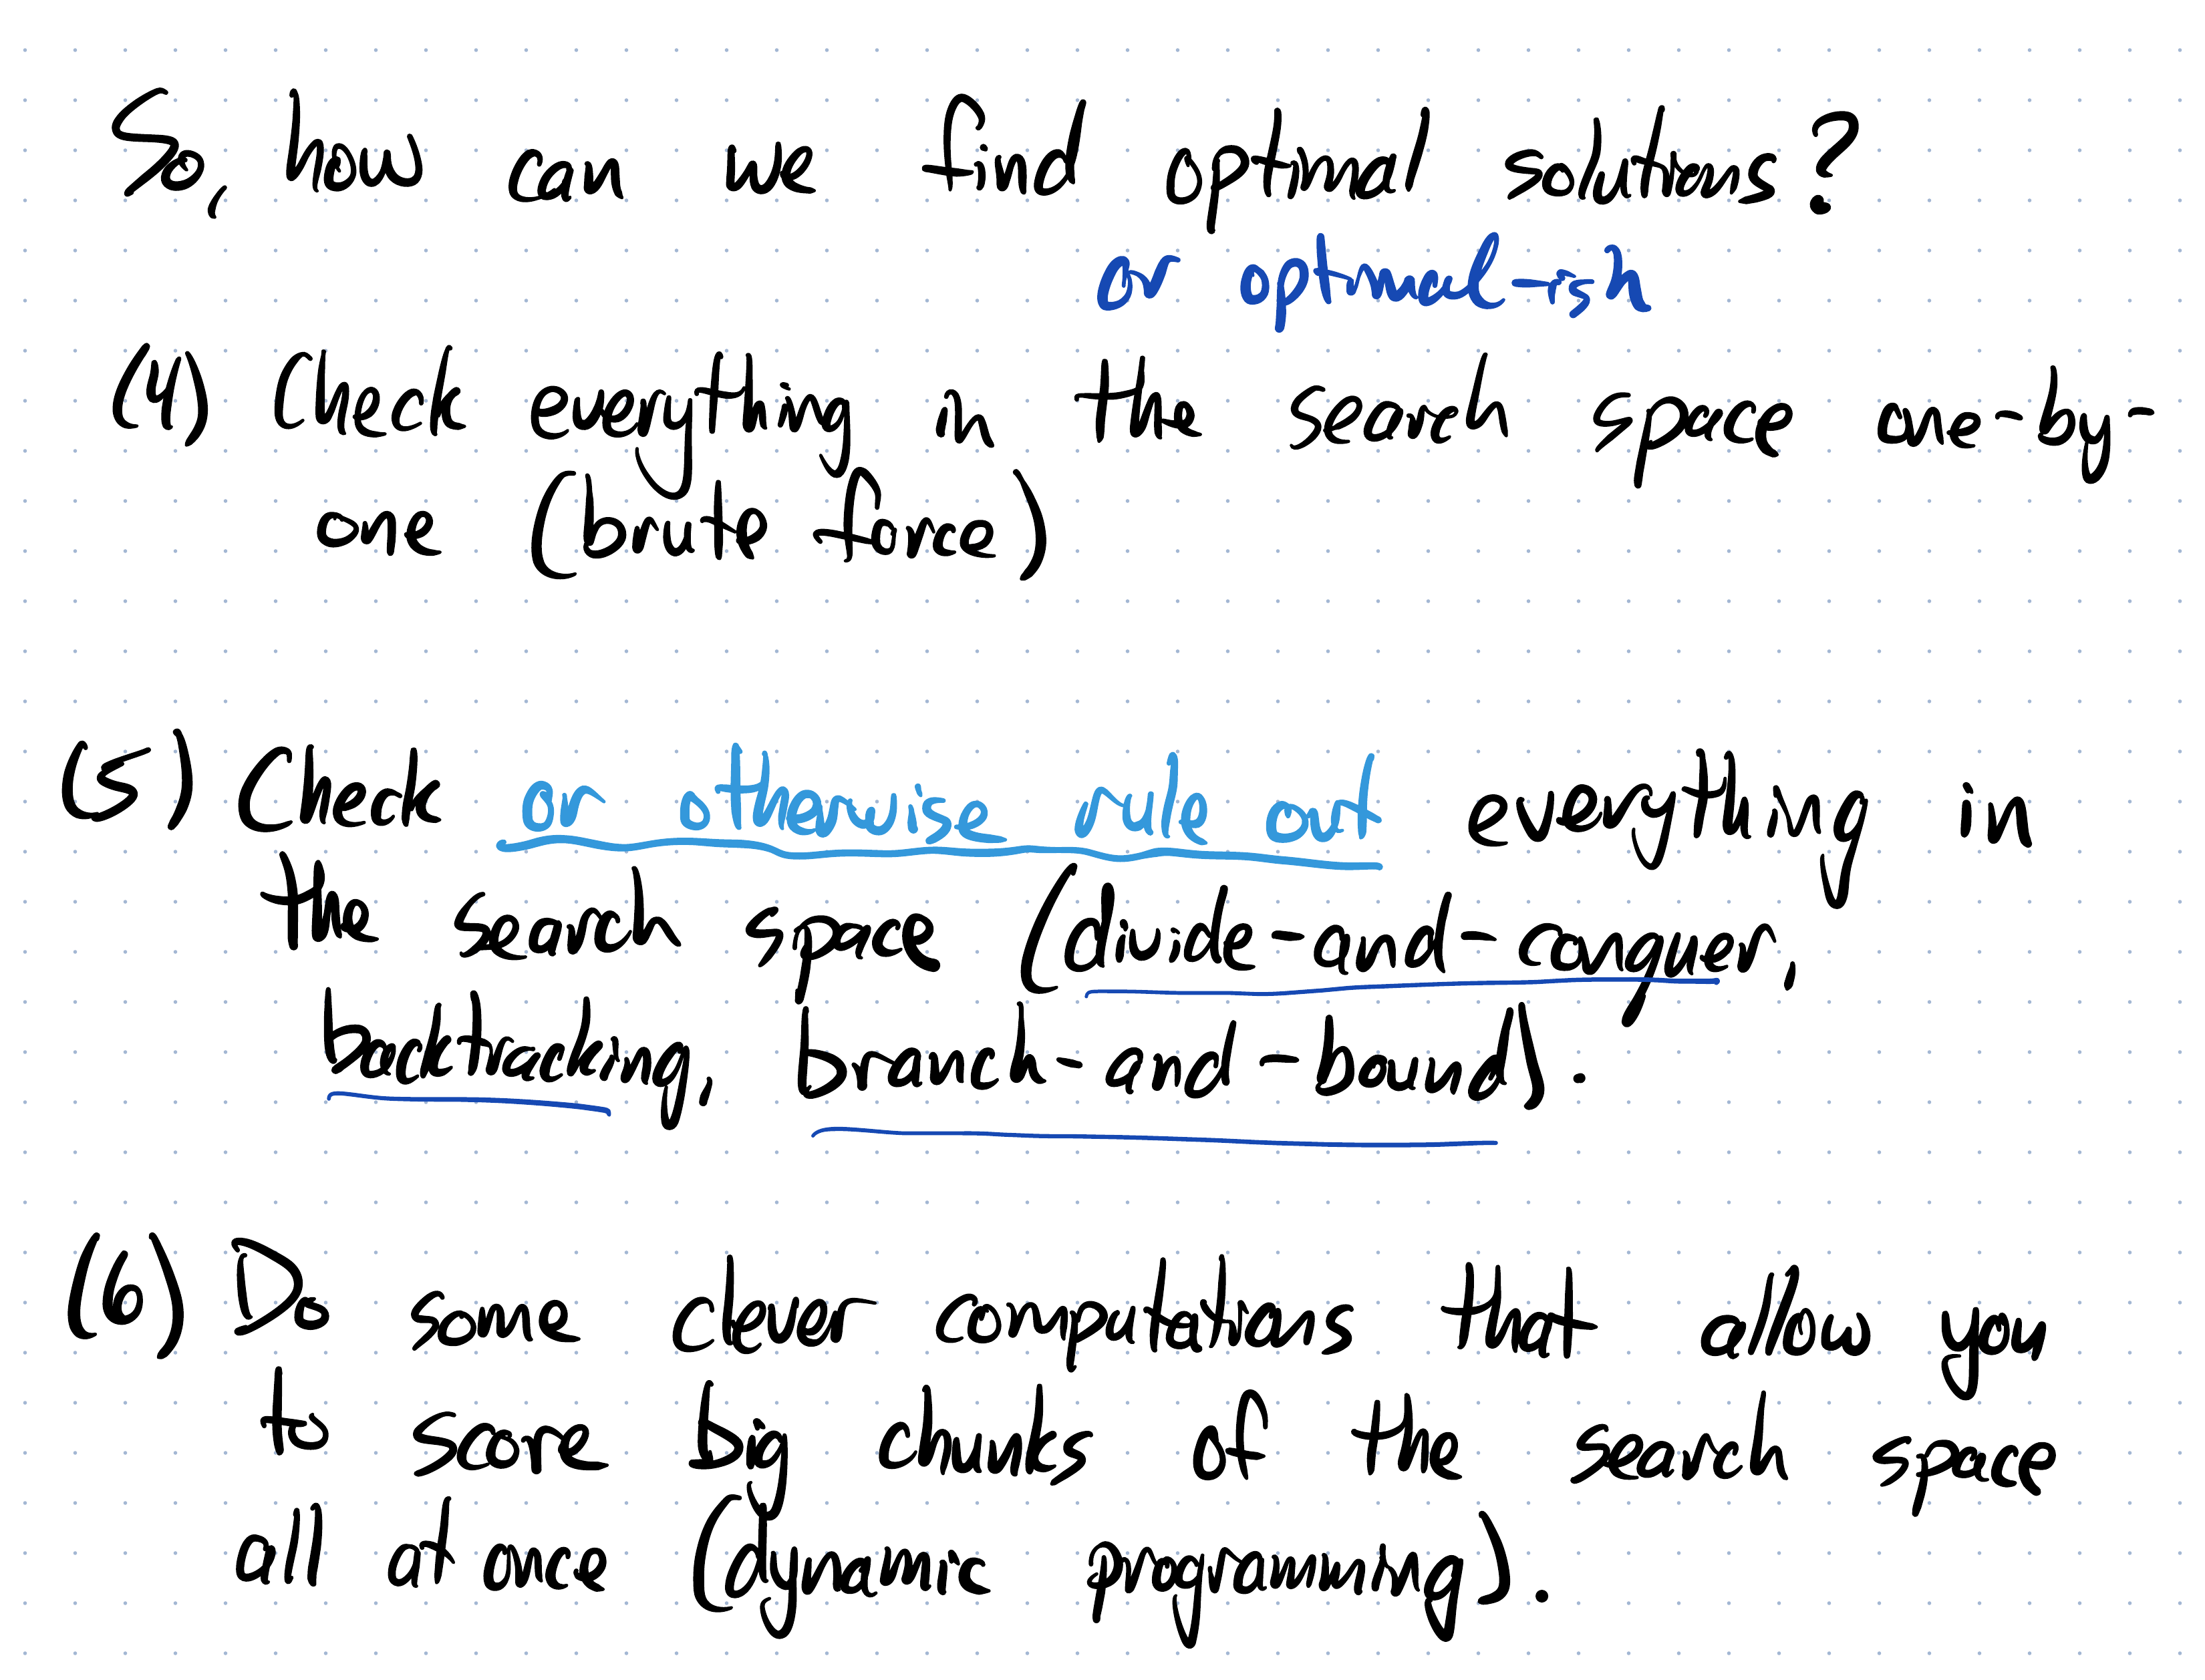 So, how can we find optimal solutions?
or optimal-ish
(4) Check everything in the search space one-by-
one (brute force)
(5) Check or otherwise rule out everything in
the search space (divide-and-conquer,
backtracking, branch-and-bound).
(6) Do some clever computations that allow you
to score big chunks of the search space
all at once (dynamic programming).